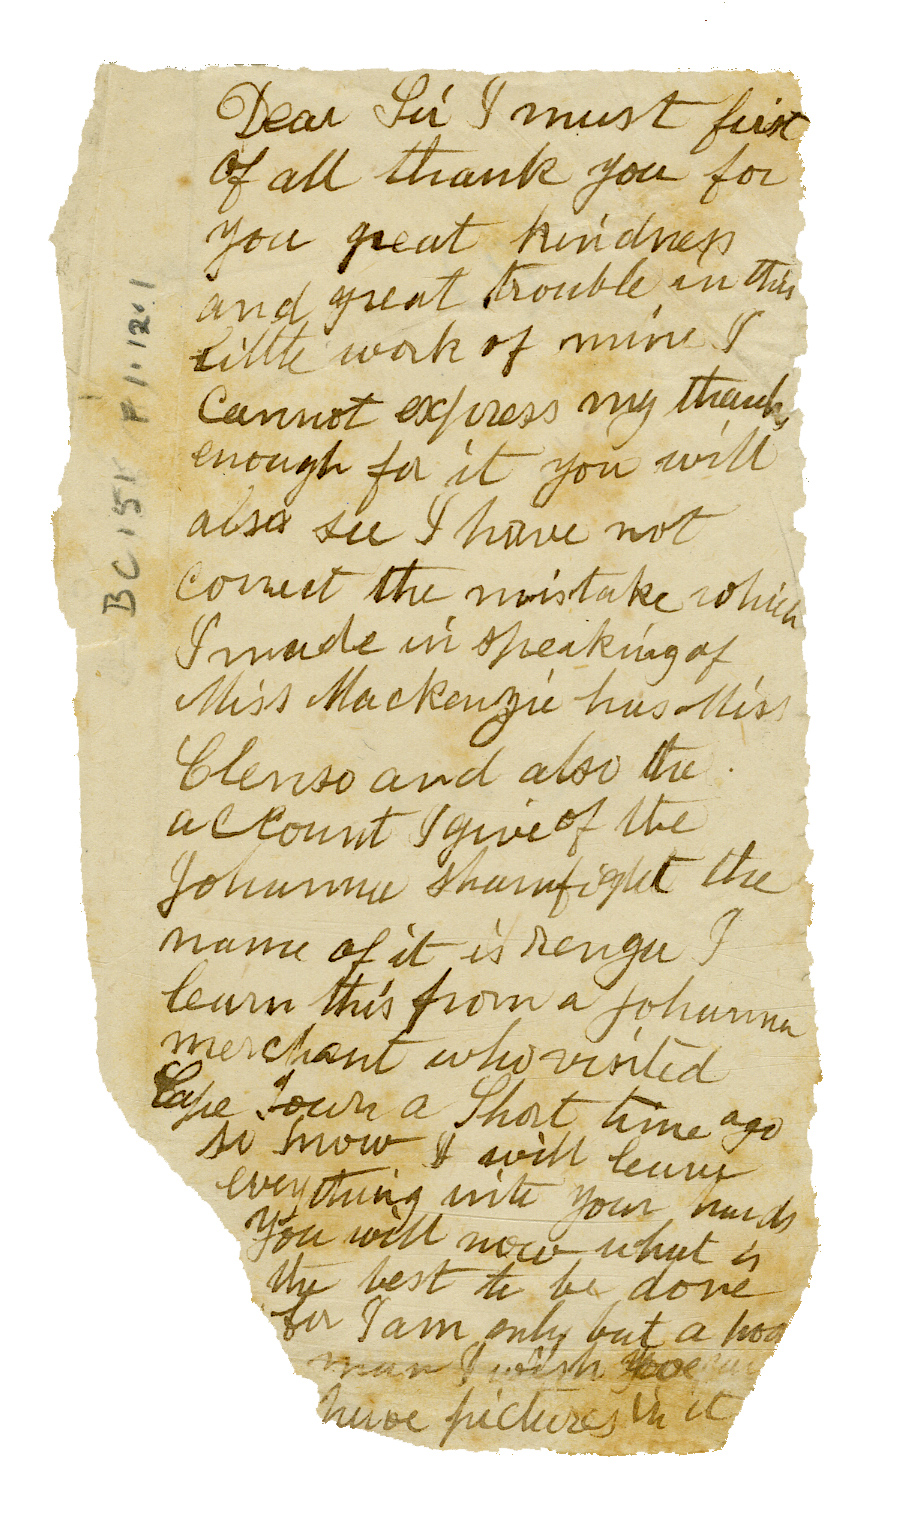 Dear Sir I must first
of all thank you for
you great kindness
and great trouble in this
little work of mine I
cannot express my thanks
enough for it you will
also see I have not
correct the mistake which
I made in speaking of
Miss Mackenzie has Miss
Clenso and also the
account I give of the
Johanna shamfight the
name of it is rengu I
learn this from a Johanna
merchant who visited
Cape Town a Short time ago
so now I will leave
everything into your hands
you will now what is
the best to be done
for I am only but a poo
man I wish
have pictures in it
BC 151 F1.12.1